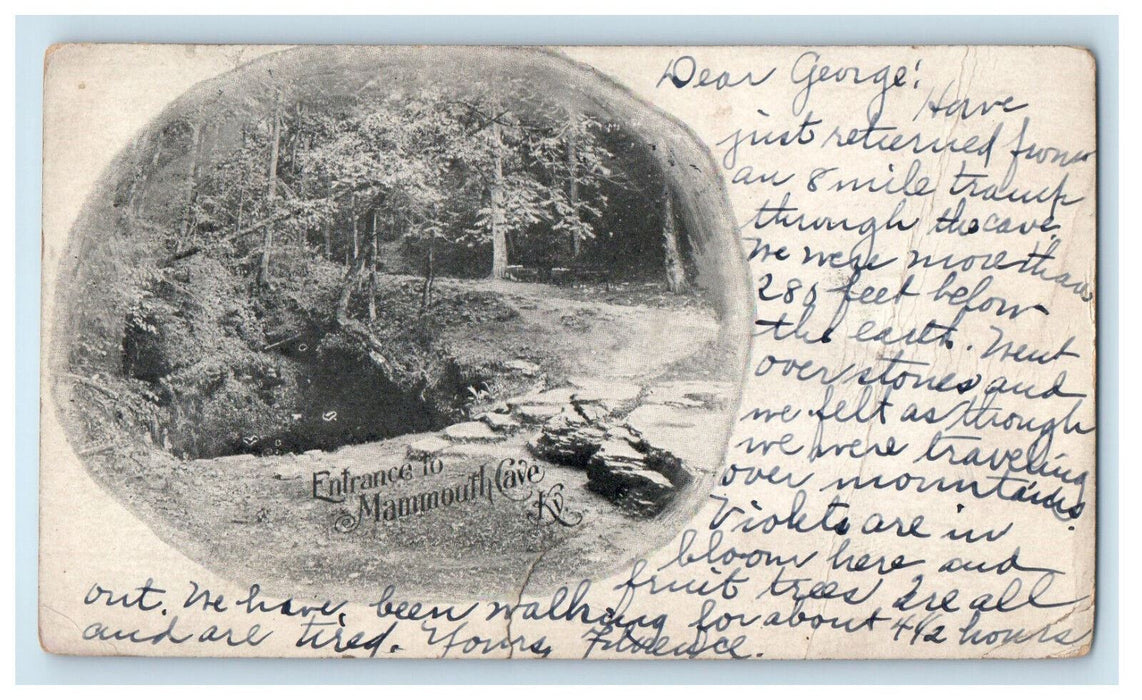 Dear George!
Have
just returned from
an 8 mile tramp
through the cave.
We were more than
280 feet below
the earth. Went
over stones and
we felt as through
we were traveling
over mountains.
Violets are in
bloom here and
fruit trees are all
out. We have been walking for about 4 1/2 hours
and are tired. Yours, Florence.
Entrance to
Mammouth Cave
Ky.